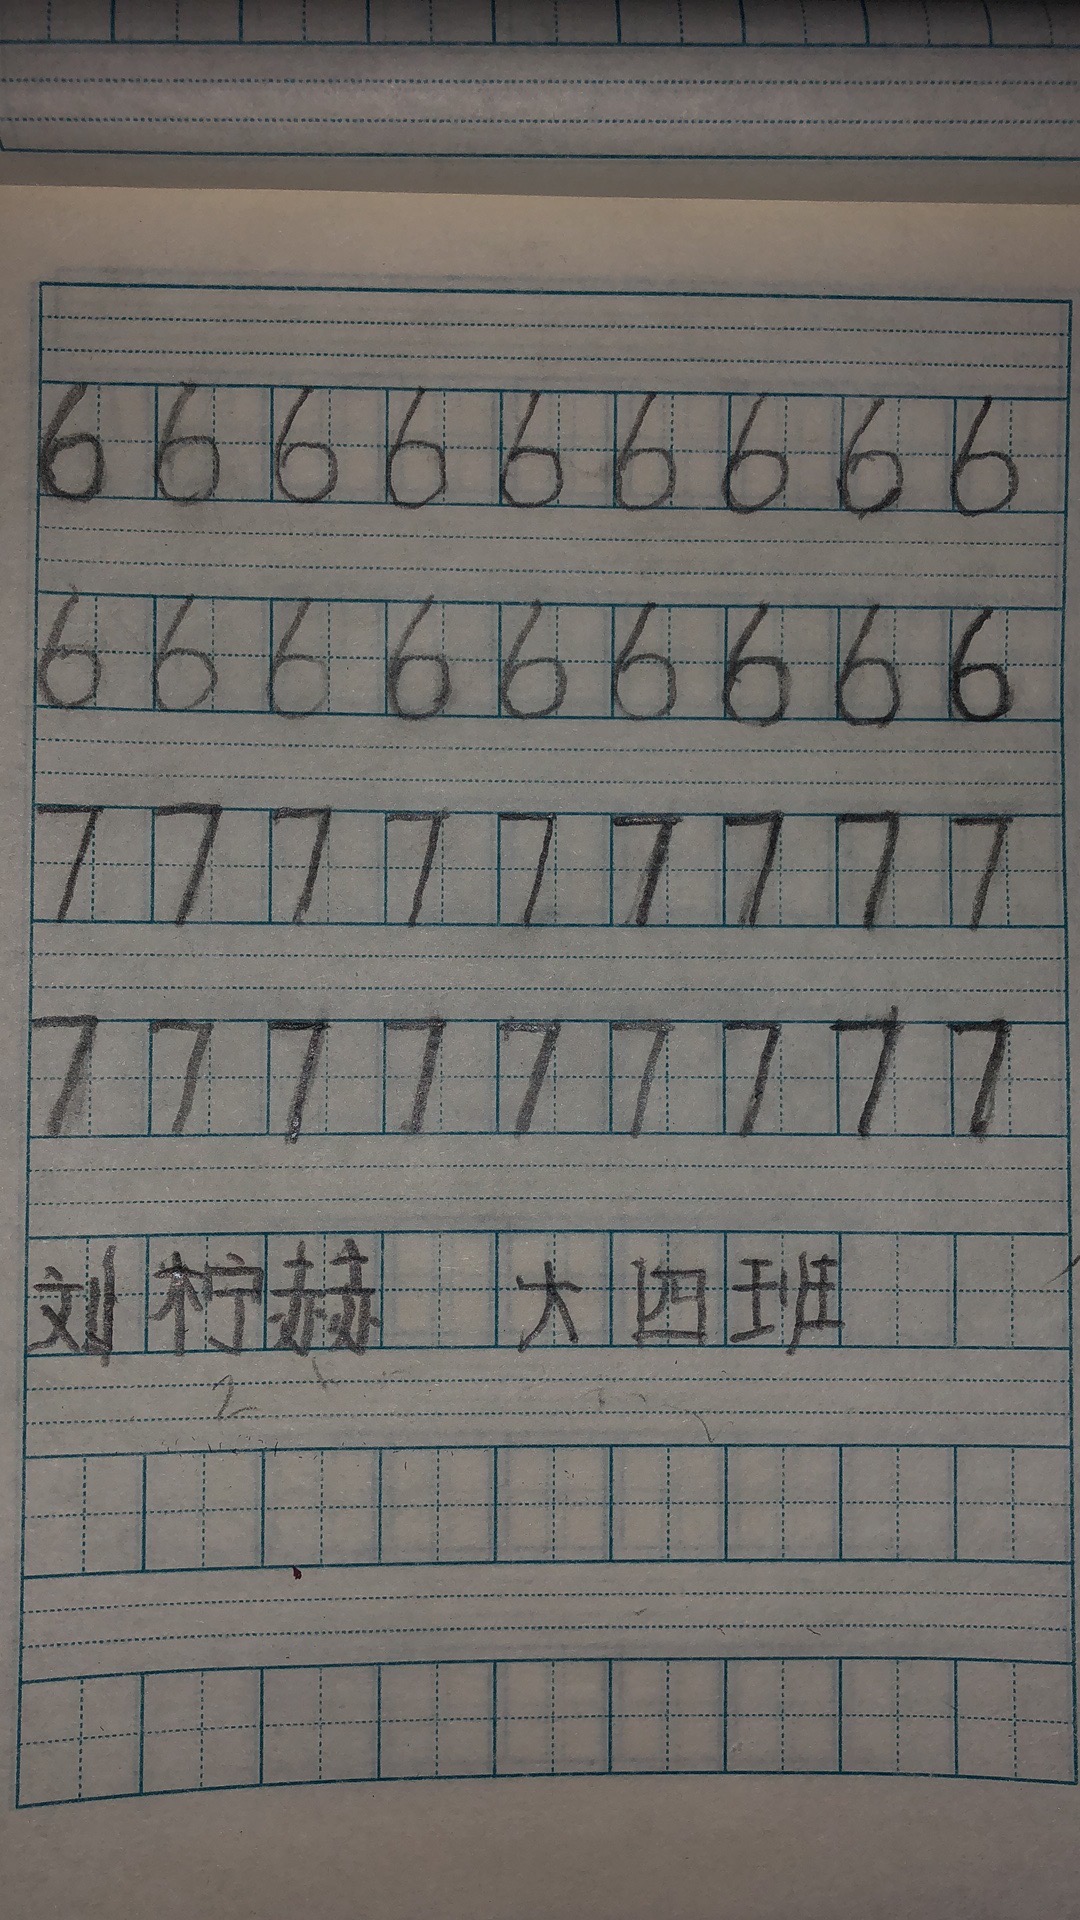 6 6 6 6 6 6 6 6 6
6 6 6 6 6 6 6 6 6
7 7 7 7 7 7 7 7 7
7 7 7 7 7 7 7 7 7
刘柠赫 大四班
2